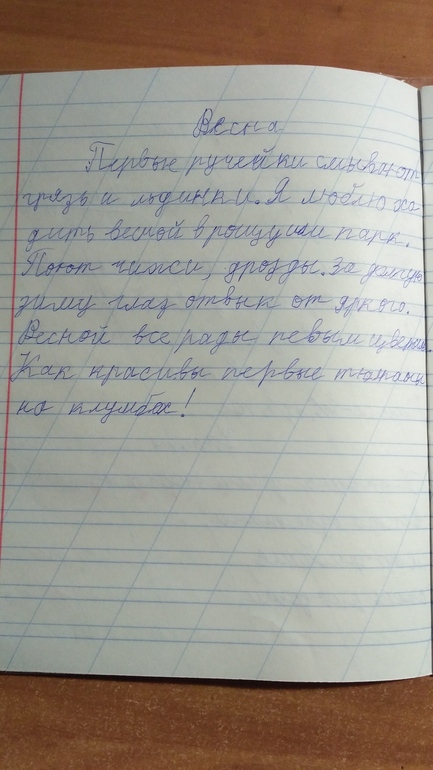 Весна
Первые ручейки смывают
грязь и льдинки. Я люблю хо-
дить весной в рощу или парк.
Поют чижи, дрозды. За долгую
зиму глаз отвык от яркого.
Весной все рады певым цветам.
Как красивы первые тюльпаны
на клумбах!